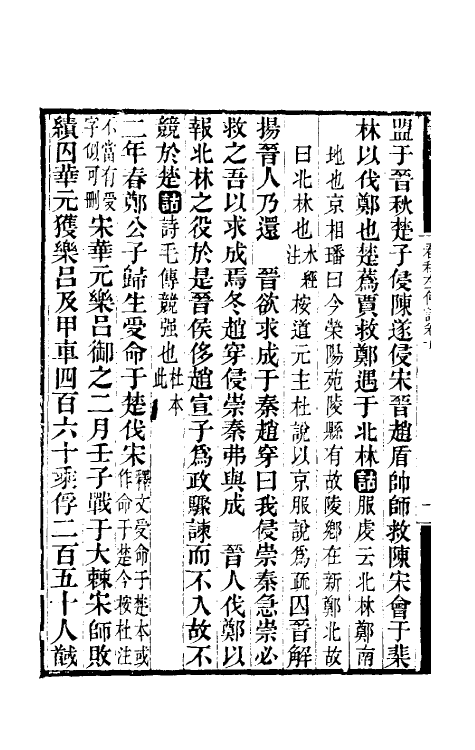 盟于晉秋楚子侵陳遂侵宋晉趙盾帥師救陳宋會于棐
林以伐鄭也楚蒍賈救鄭遇于北林詁服虔云北林鄭南
地也京相璠曰今滎陽苑陵縣有故陵鄉在新鄭北故
曰北林也水經注按道元主杜說以京服說爲疏囚晉解
揚晉人乃還　晉欲求成于秦趙穿曰我侵崇秦急崇必
救之吾以求成焉冬趙穿侵崇秦弗與成　晉人伐鄭以
報北林之役於是晉侯侈趙宣子爲政驟諫而不入故不
競於楚詁詩毛傳競强也杜本此
二年春鄭公子歸生受命于楚伐宋釋文受命于楚本或作命于楚今按杜注
不當有受字似可刪宋華元樂呂御之二月壬子戰于大棘宋師敗
績囚華元獲樂呂及甲車四百六十乘俘二百五十人馘
春秋左傳詁卷十